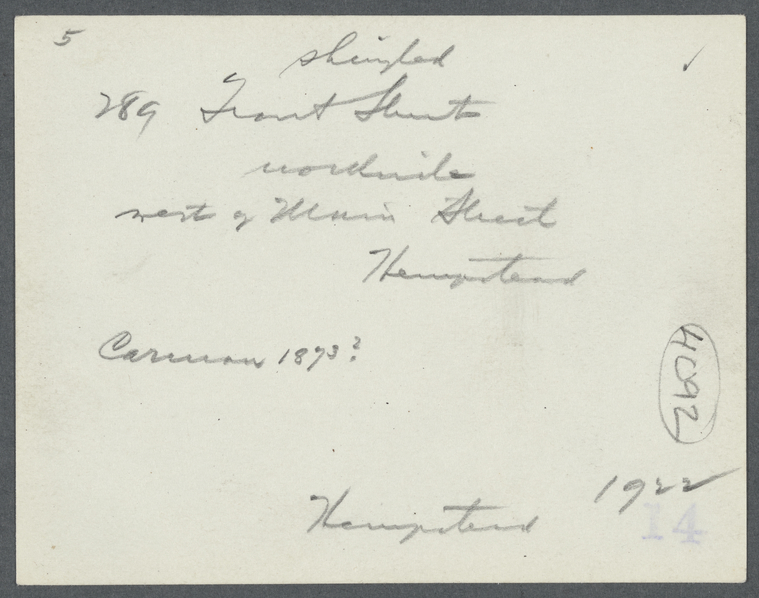 5
shingled
289 Front Street
northside
west of Main Street
Hempstead
Carman 1873?
4092
1922
Hempstead
14